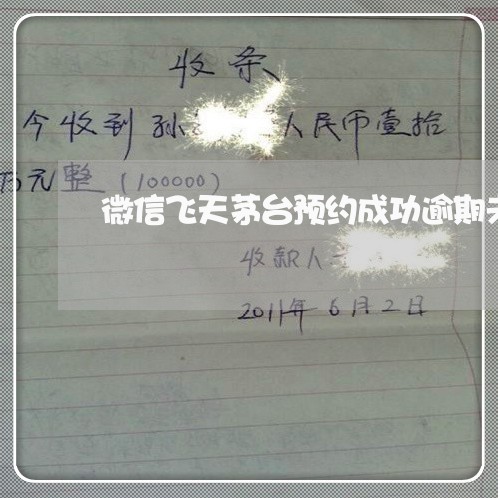 收条
今收到孙 人民币壹拾
万元整（100000）
微信飞天茅台预约成功逾期
收款人
2011年6月2日